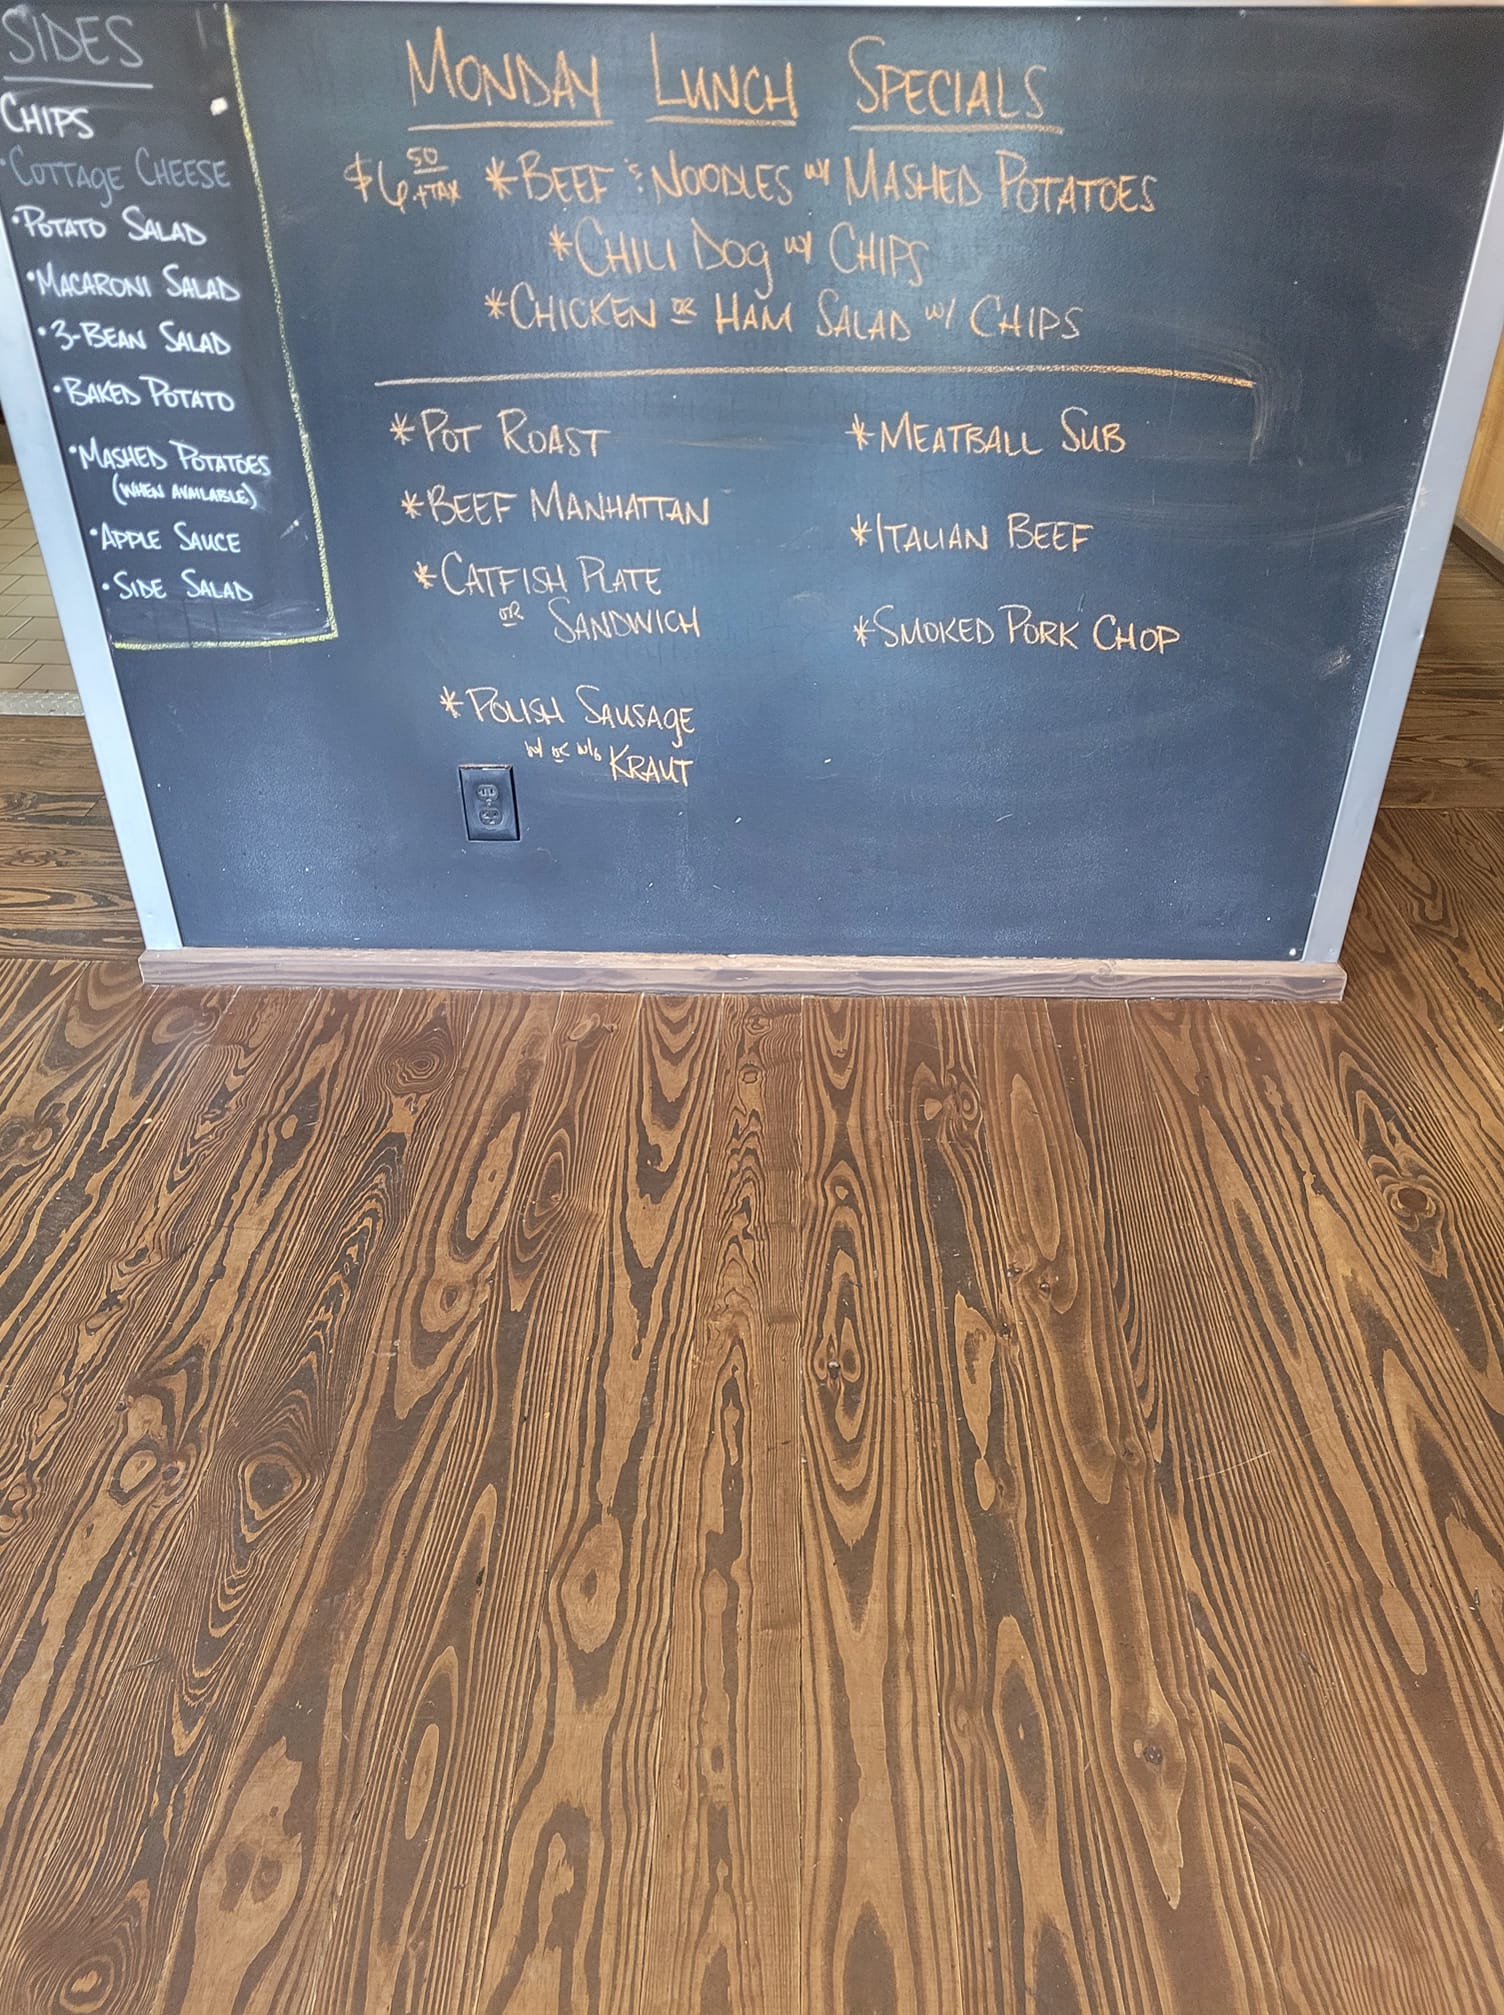 SIDES
CHIPS
•COTTAGE CHEESE
•POTATO SALAD
•MACARONI SALAD
•3-BEAN SALAD
•BAKED POTATO
•MASHED POTATOES
(WHEN AVAILABLE)
•APPLE SAUCE
•SIDE SALAD
MONDAY LUNCH SPECIALS
$6.50 +TAX *BEEF & NOODLES w/ MASHED POTATOES
*CHILI DOG w/ CHIPS
*CHICKEN OR HAM SALAD w/ CHIPS
*POT ROAST
*BEEF MANHATTAN
*CATFISH PLATE
OR SANDWICH
*POLISH SAUSAGE
w/ OR w/o KRAUT
*MEATBALL SUB
*ITALIAN BEEF
*SMOKED PORK CHOP